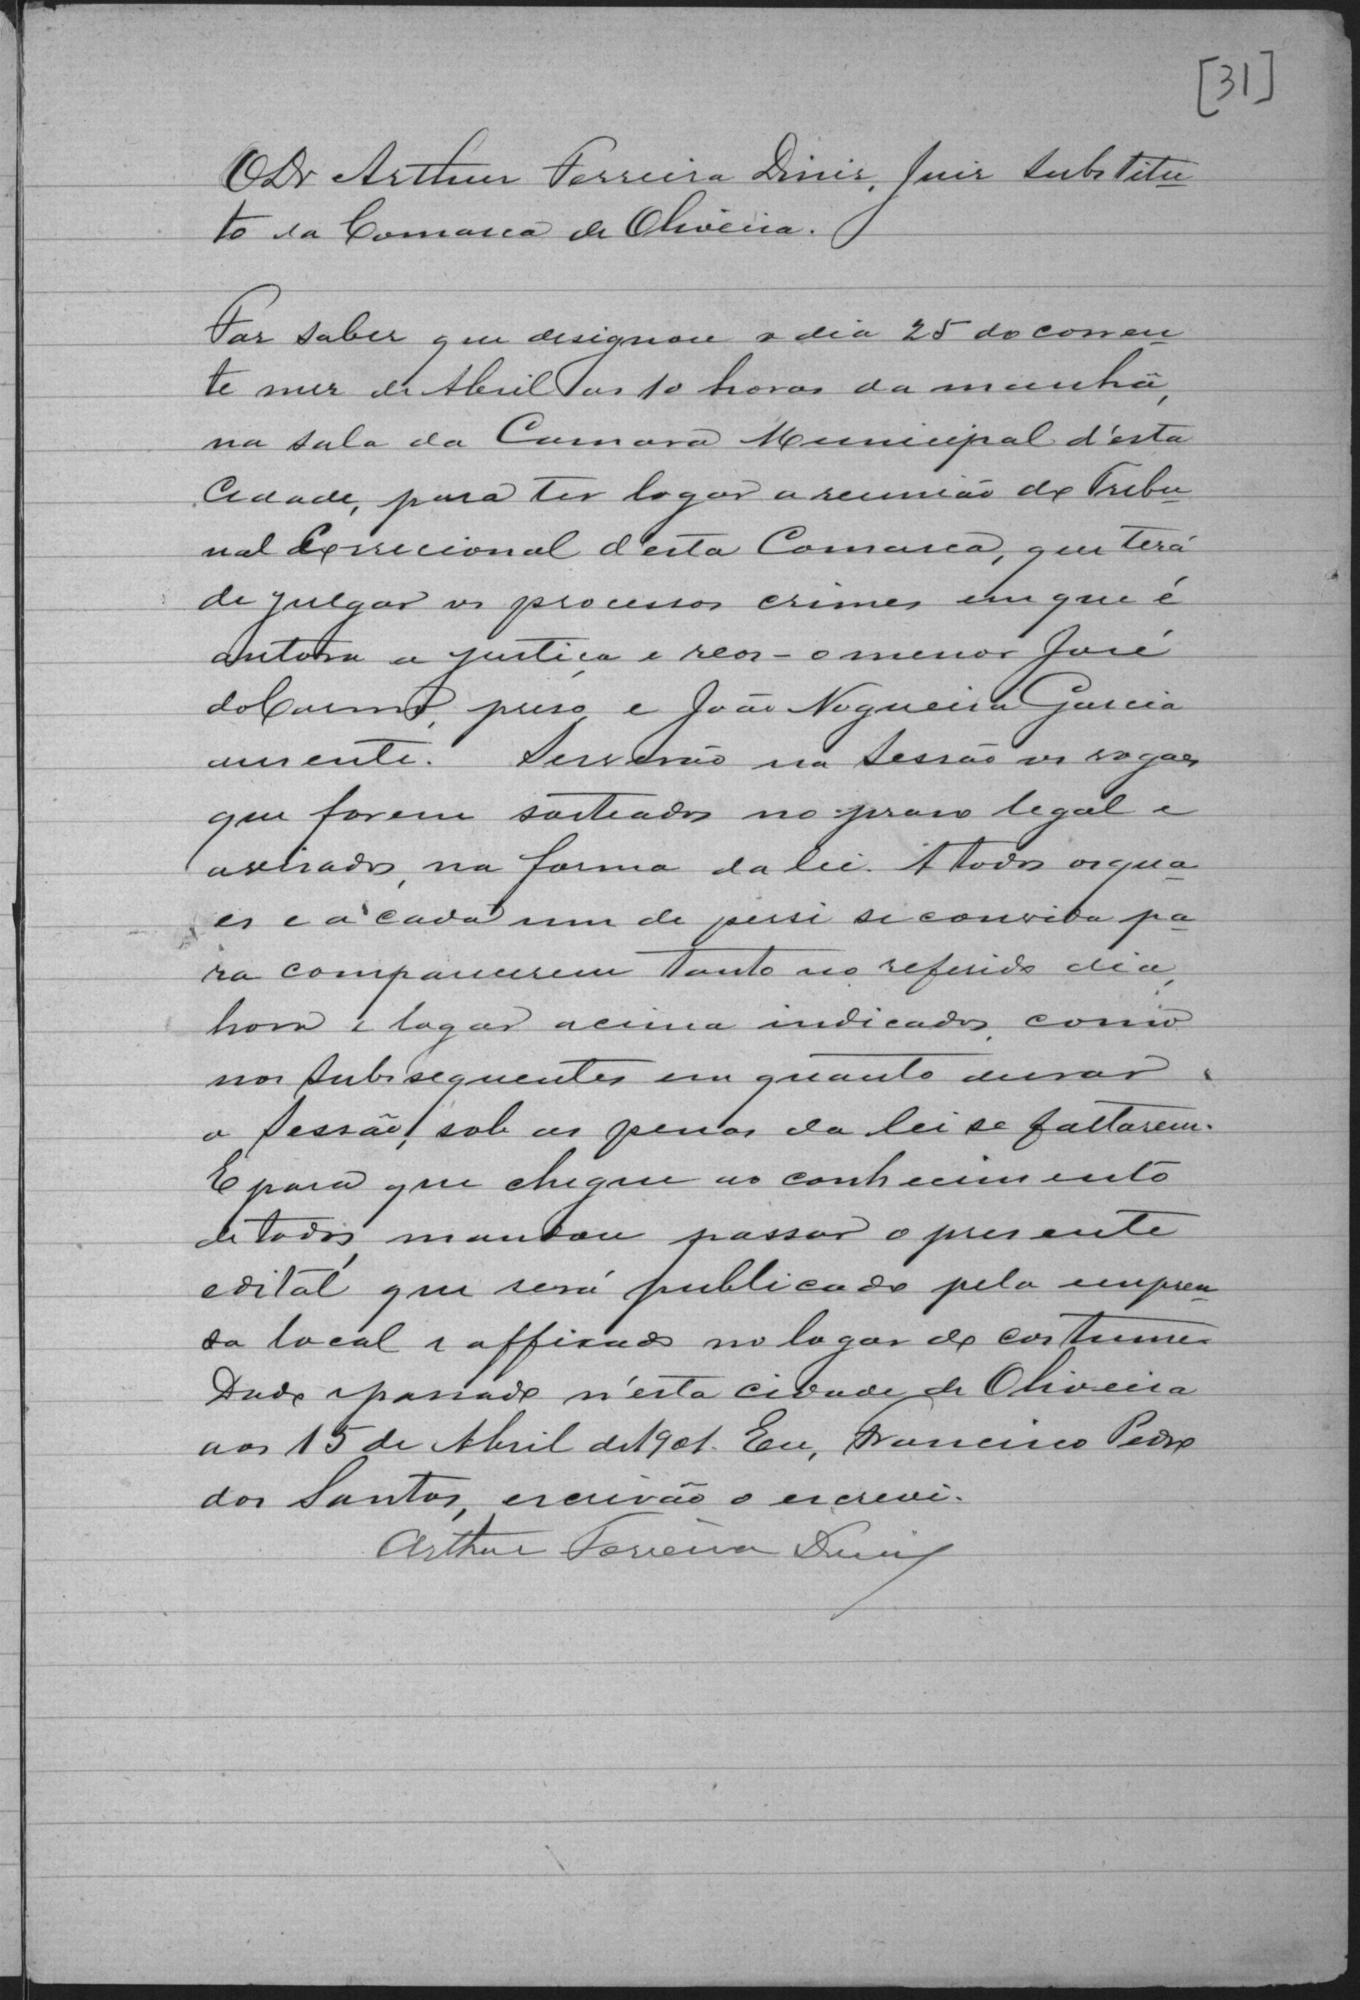 [31]
O Dr Arthur Ferreira Diniz, Juiz Substitu-
to da Comarca de Oliveira.
Faz saber que designou o dia 25 do corren-
te mez de Abril as 10 horas da manhã,
na sala da Camara Municipal d'esta
Cidade, para ter logar a reunião do Tribu-
nal Correccional d'esta Comarca, que terá
de julgar os processos crimes em que é
autora a justiça e reos - o menor José
do Carmo, preso, e João Nogueira Garcia
ausente. Servirão na Sessão os vogaes
que forem sorteados no praso legal e
avisados, na forma da lei. A todos os qua-
es e a cada um de persi se convida pa-
ra comparecerem tanto no referido dia,
hora e logar acima indicados, como
nos subsequentes em quanto durar
a Sessão, sob as penas da lei se faltarem.
E para que chegue ao conhecimento
de todos, mandou passar o presente
edital que será publicado pela impren-
sa local e affixado no logar do costume.
Dado e passado n'esta cidade de Oliveira
aos 15 de Abril de 1901. Eu, Francisco Pedro
dos Santos, escrivão o escrevi.
Arthur Ferreira Diniz